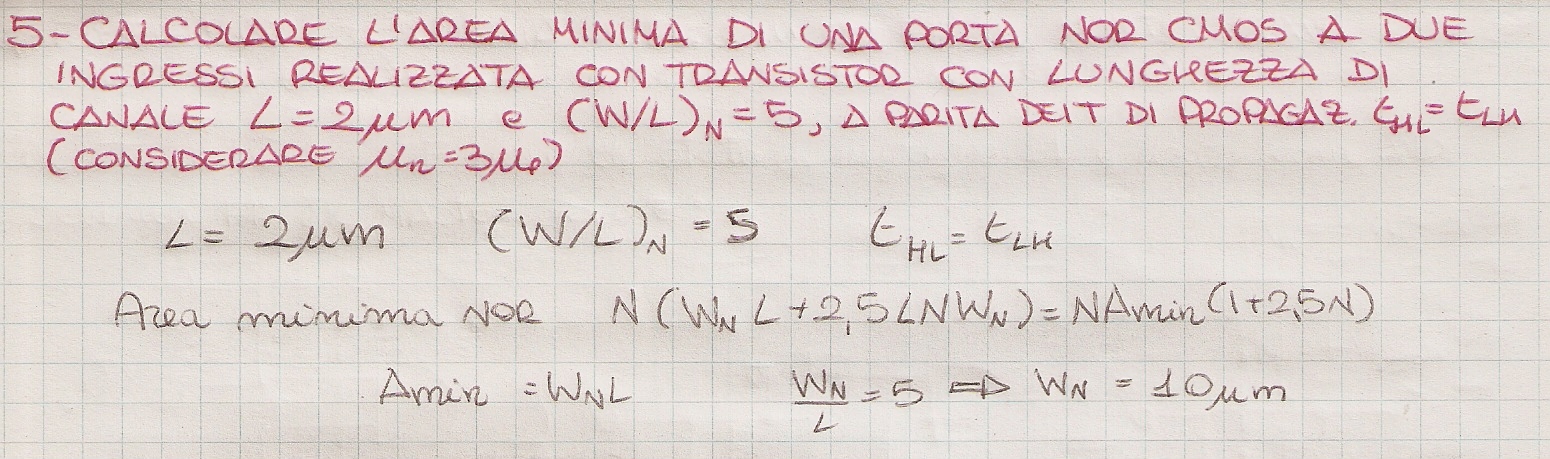 5-CALCOLARE L'AREA MINIMA DI UNA PORTA NOR CMOS A DUE
INGRESSI REALIZZATA CON TRANSISTOR CON LUNGHEZZA DI
CANALE L=2μm e (W/L)N=5, A PARITA DEI T DI PROPAGAZ. tHL=tLH
(CONSIDERARE μn=3μp)
L= 2μm (W/L)N = 5 tHL= tLH
Area minima NOR N(WN L+2,5LNWN)=NAmin(1+2,5N)
Amin =WNL WN/L =5 => WN = 10μm